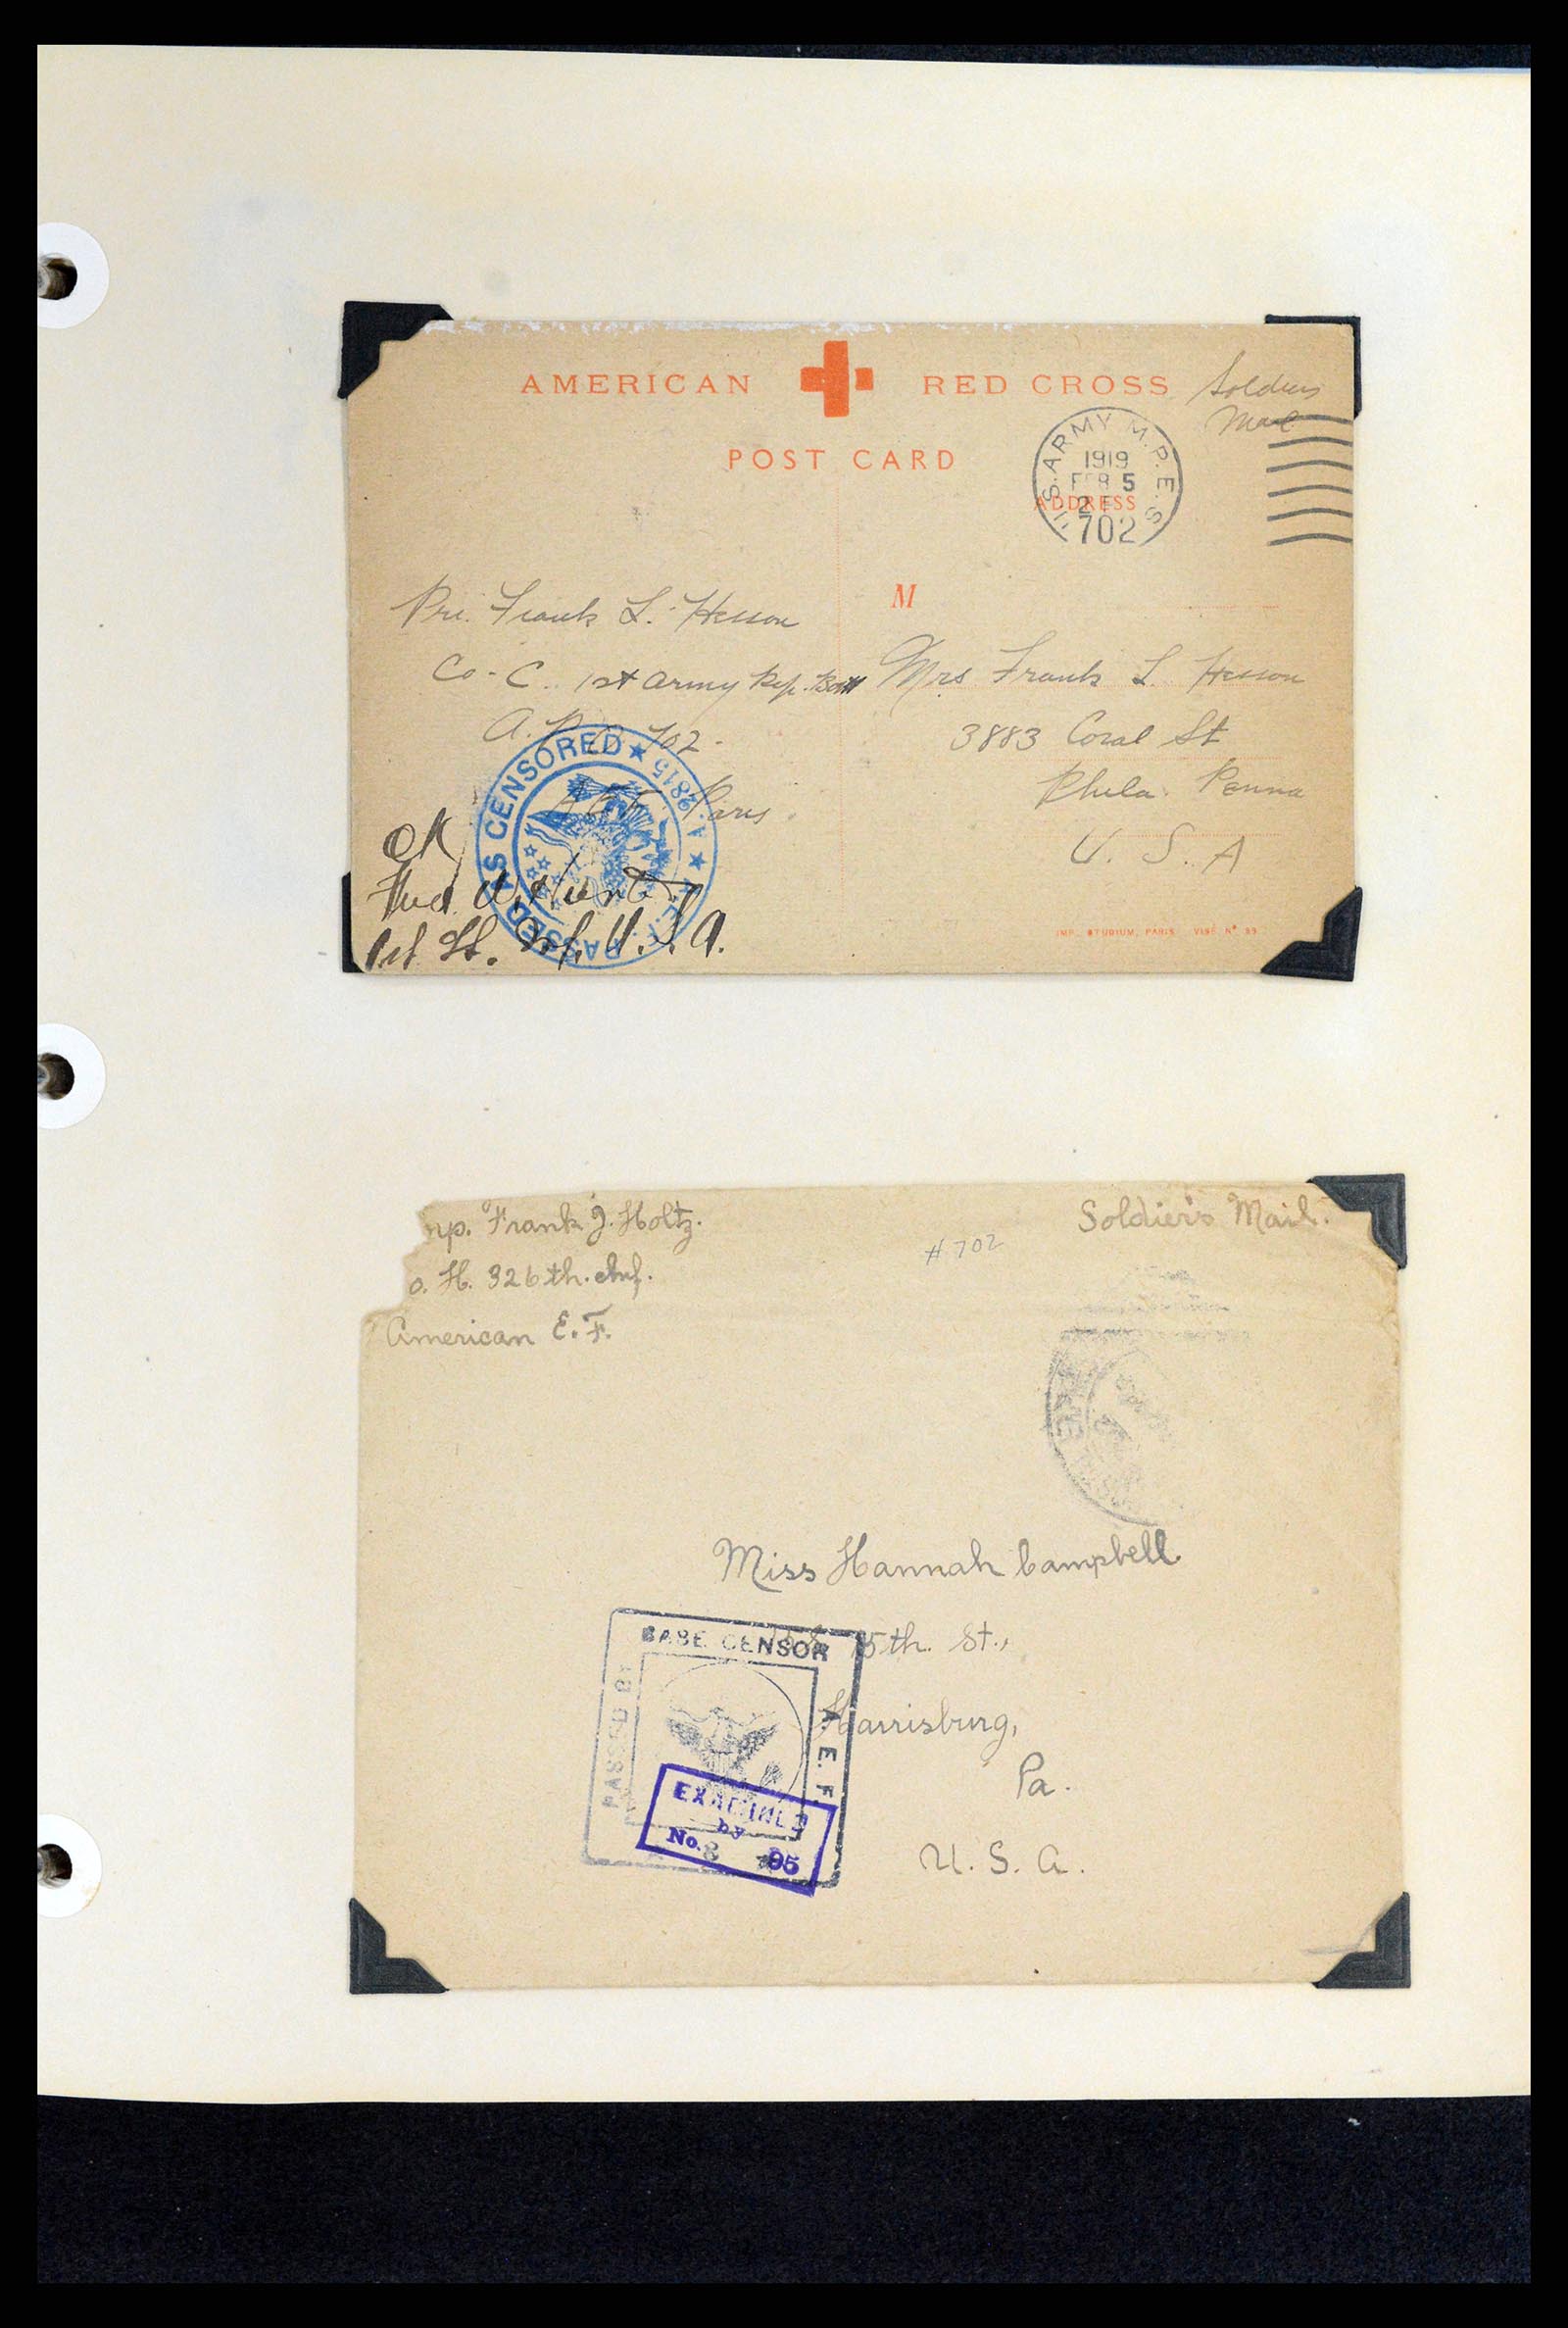 AMERICAN RED CROSS
Soldiers
Mail
POST CARD
U.S. ARMY M.P.E.S.
1919
FEB 5
702
ADDRESS
M
Pri. Frank L. Hesson
Co-C. 1st Army Rep. Batt
A.P.O. 702.
A.E.F. Paris.
Mrs Frank L. Hesson
3883 Coral St
Phila Penna
U. S. A
PASSED AS CENSORED ★ A.2815 ★ A.E.F.
OK
1st Lt. Inf. U.S.A.
IMP. STUDIUM, PARIS VISÉ Nº 99
rp. Frank J. Holtz.
o. H. 326th. Inf.
American E. F.
#702
Soldier's Mail.
Miss Hannah Campbell
15th. St.,
Harrisburg,
Pa.
U. S. A.
BASE CENSOR
PASSED BY
A. E. F.
EXAMINED
by
No. 8 95